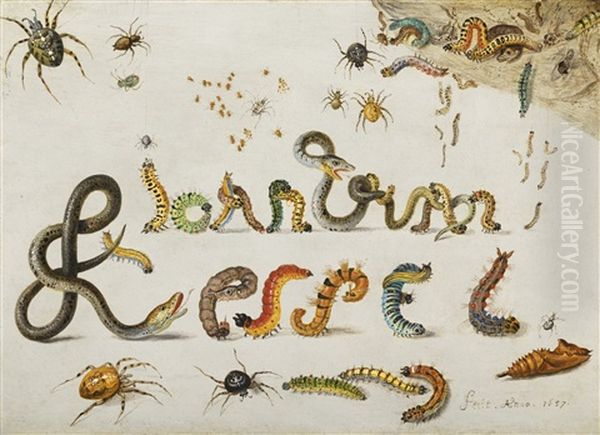 Joan van
Kessel
fecit. Anno. 1657.
NiceArtGallery.com